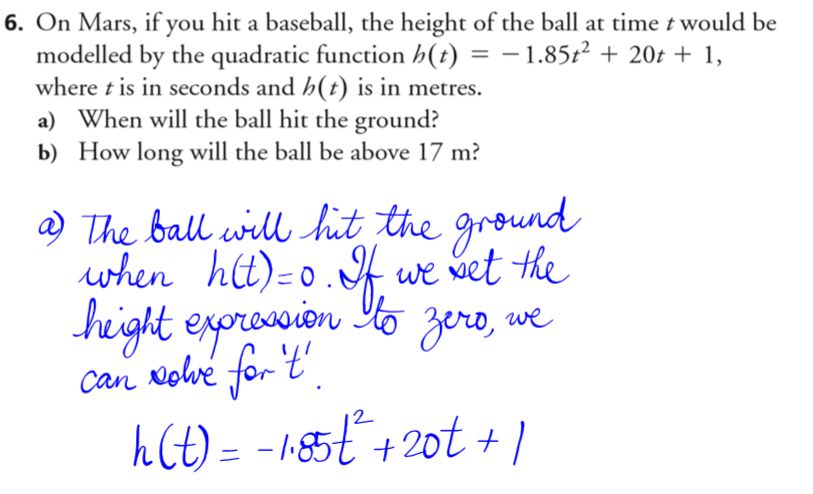 6. On Mars, if you hit a baseball, the height of the ball at time t would be
modelled by the quadratic function h(t) = −1.85t² + 20t + 1,
where t is in seconds and h(t) is in metres.
a) When will the ball hit the ground?
b) How long will the ball be above 17 m?
a) The ball will hit the ground
when h(t)=0. If we set the
height expression to zero, we
can solve for 't'.
h(t) = -1.85t² + 20t + 1